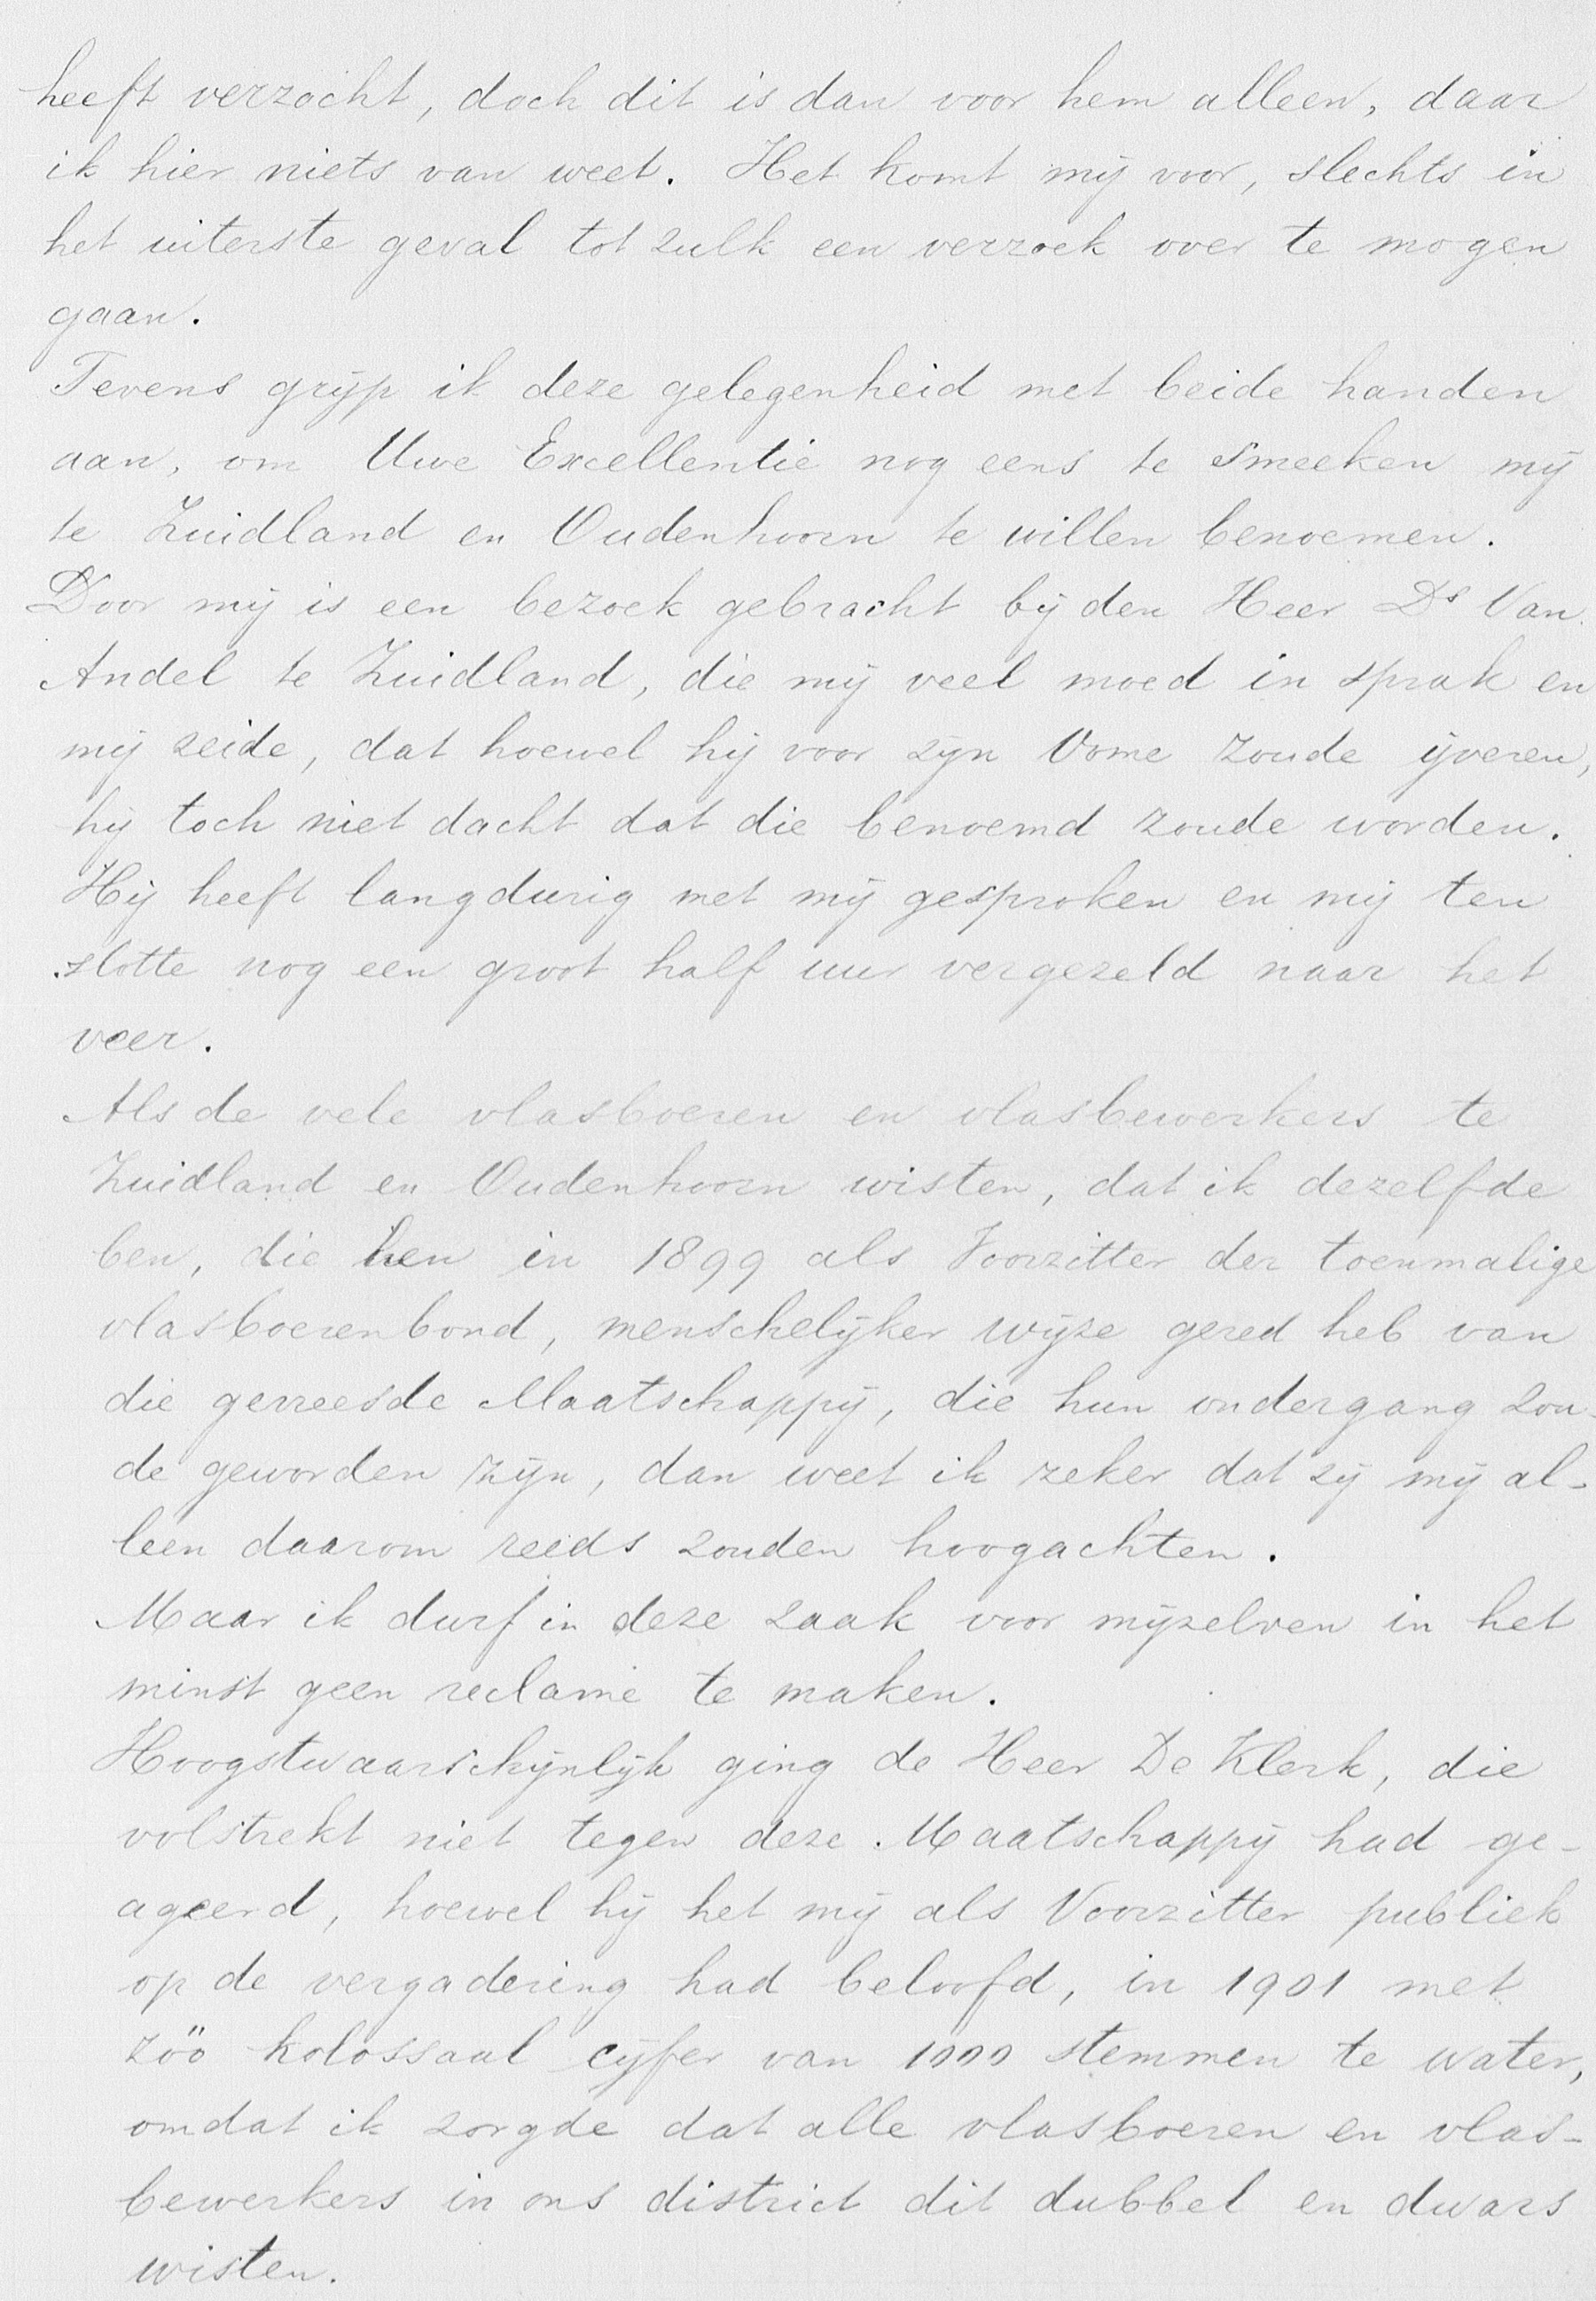 heeft verzocht, doch dit is dan voor hem alleen, daar
ik hier niets van weet. Het komt mij voor, slechts in
het uiterste geval tot zulk een verzoek over te mogen
gaan.
Tevens grijp ik deze gelegenheid met beide handen
aan, om Uwe Excellentie nog eens te smeeken mij
te Zuidland en Oudenhoorn te willen benoemen.
Door mij is een bezoek gebracht bij den Heer Ds Van
Andel te Zuidland, die mij veel moed in sprak en
mij zeide, dat hoewel hij voor zijn Oome zoude ijveren,
hij toch niet dacht dat die benoemd zoude worden.
Hij heeft langdurig met mij gesproken en mij ten
slotte nog een groot half uur vergezeld naar het
veer.
Als de vele vlasboeren en vlasbewerkers te
Zuidland en Oudenhoorn wisten, dat ik dezelfde
ben, die hen in 1899 als Voorzitter der toenmalige
vlasboerenbond, menschelijker wijze gered heb van
die gevreesde Maatschappij, die hun ondergang zou-
de geworden zijn, dan weet ik zeker dat zij mij al-
leen daarom reeds zouden hoogachten.
Maar ik durf in deze zaak voor mijzelven in het
minst geen reclame te maken.
Hoogstwaarschijnlijk ging de Heer De Klerk, die
volstrekt niet tegen deze Maatschappij had ge-
ageerd, hoewel hij het mij als Voorzitter publiek
op de vergadering had beloofd, in 1901 met
zöo kolossaal cijfer van 1000 stemmen te water,
omdat ik zorgde dat alle vlasboeren en vlas-
bewerkers in ons district dit dubbel en dwars
wisten.